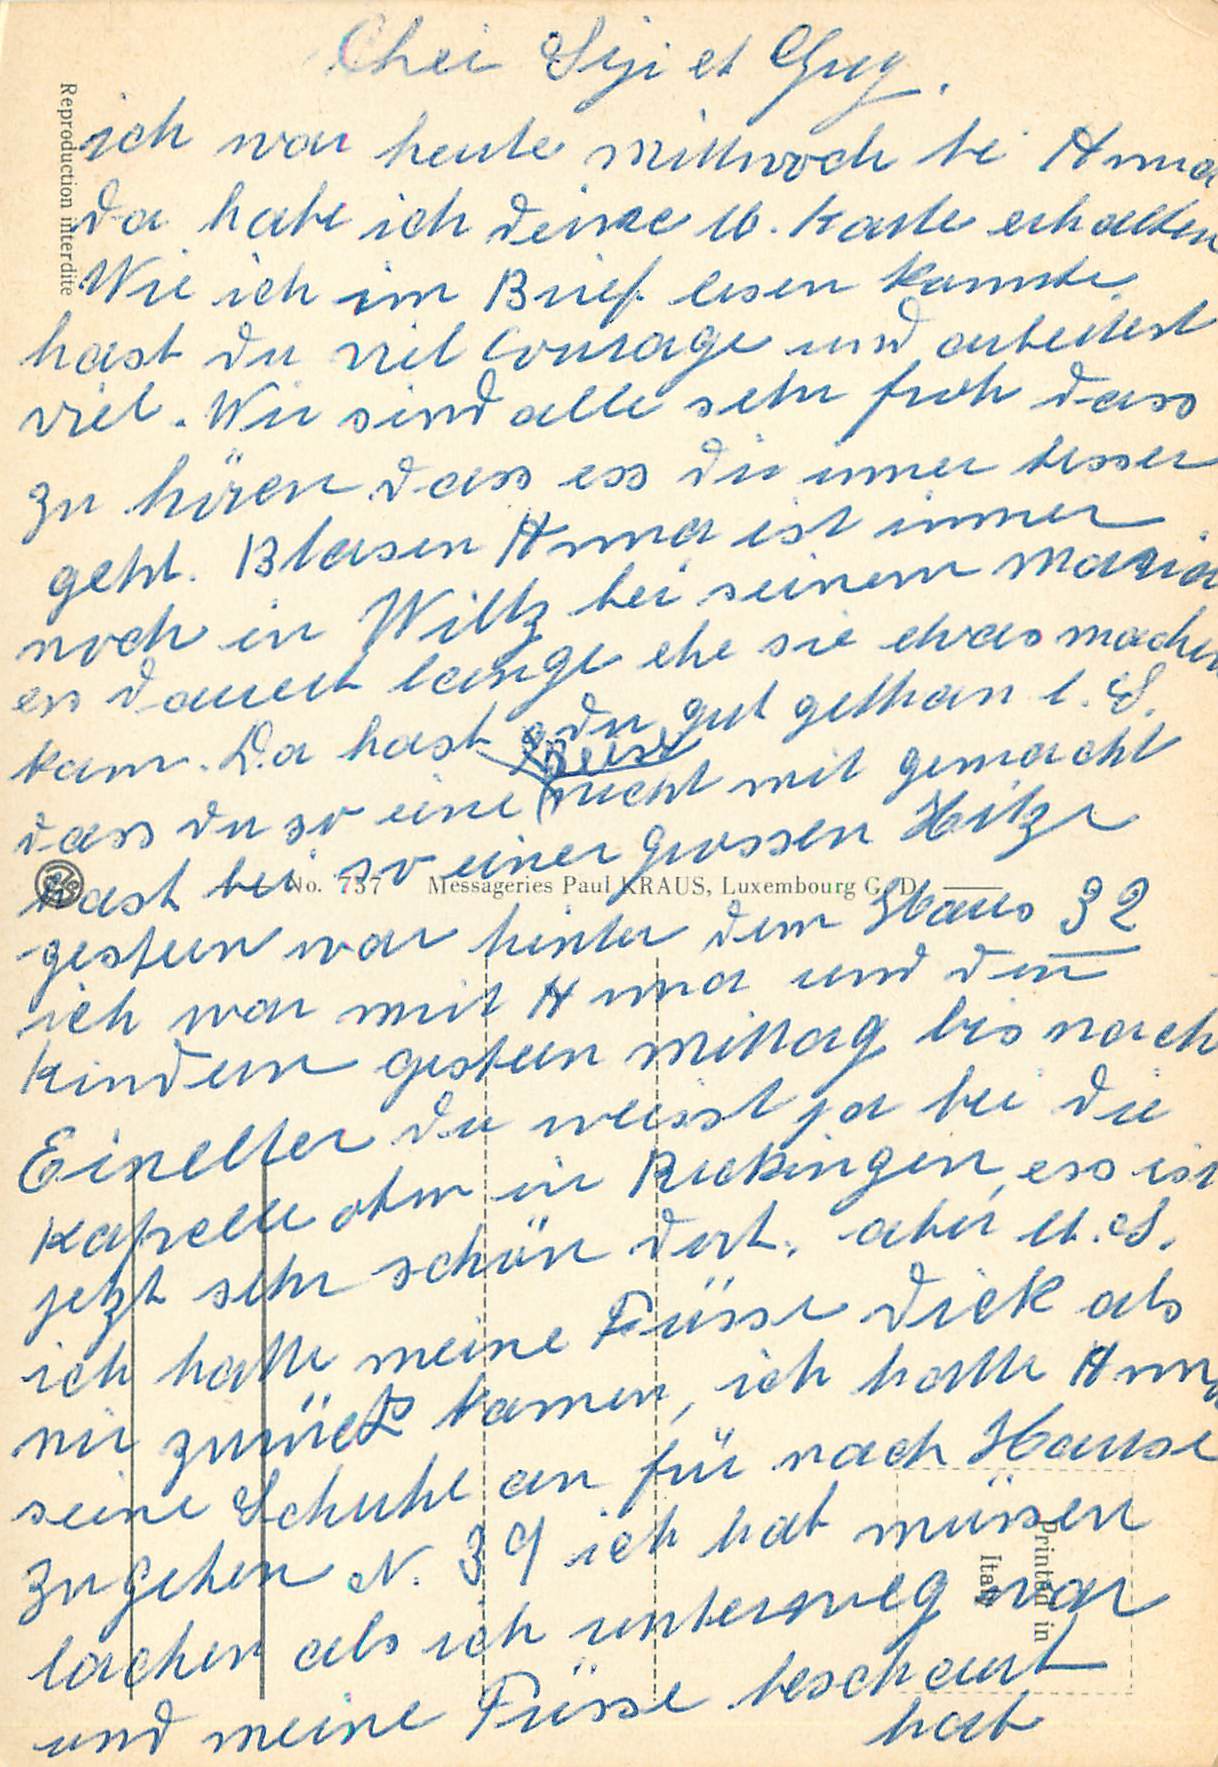 Cher Siji et Guy.
ich war heute Mittwoch bei Anna
da habe ich deine lb. Karte erhalten
Wie ich im Brief lesen konnte
hast du viel Courage und arbeitest
viel. Wir sind alle sehr froh dass
zu hören dass ess dir immer besser
geht. Blasen Anna ist immer
noch in Wiltz bei seinem Maria
ess dauert lange ehe sie etwas machen
kann. Da hast du gut gethan l. S.
dass du so eine Reise nicht mit gemacht
hast bei so einer grossen Hitze
gestern war hinter dem Haus 32
ich war mit Anna und den
Kindern gestern Mittag bis nach
Einelter du weisst ja bei die
Kapelle oben in Reckingen, ess ist
jetzt sehr schön dort. aber lb. S.
ich hatte meine Füsse dick als
wir zurück kamen, ich hatte Anna
seine Schuhe an für nach Hause
zu gehen N. 39 ich hab müssen
lachen als ich unterweg war
und meine Füsse beschaut
hab
Reproduction interdite
No. 737 Messageries Paul KRAUS, Luxembourg G. D.
Printed in
Italy